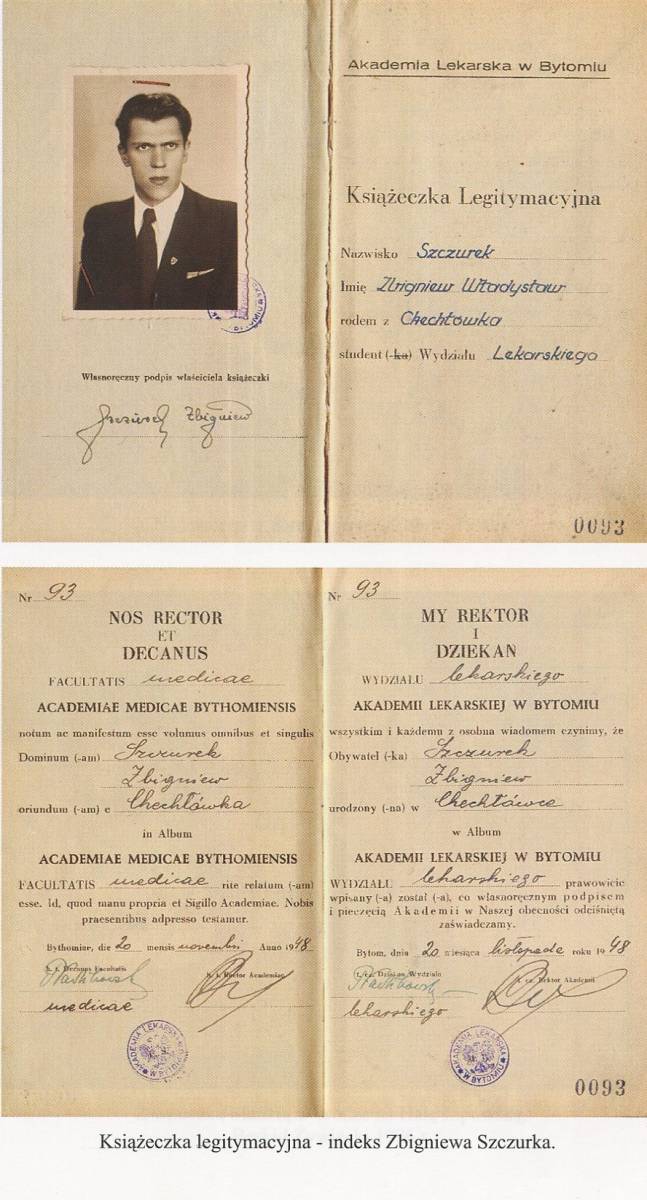 Akademia Lekarska w Bytomiu
Książeczka Legitymacyjna
Nazwisko Szczurek
Imię Zbigniew Władysław
rodem z Chechłówka
student (-ka) Wydziału Lekarskiego
Własnoręczny podpis właściciela książeczki
Szczurek Zbigniew
0093
Nr 93
NOS RECTOR
ET
DECANUS
FACULTATIS medicae
ACADEMIAE MEDICAE BYTHOMIENSIS
notum ac manifestum esse volumus omnibus et singulis
Dominum (-am) Szczurek
Zbigniew
oriundum (-am) e Chechłówka
in Album
ACADEMIAE MEDICAE BYTHOMIENSIS
FACULTATIS medicae rite relatum (-am)
esse. Id, quod manu propria et Sigillo Academiae. Nobis
praesentibus adpresso testamur.
Bythomiae, die 20 mensis novembri Anno 1948
h. t. Decanus Facultatis
h. t. Rector Academiae
medicae
AKADEMIA LEKARSKA W BYTOMIU
Nr 93
MY REKTOR
I
DZIEKAN
WYDZIAŁU lekarskiego
AKADEMII LEKARSKIEJ W BYTOMIU
wszystkim i każdemu z osobna wiadomem czynimy, że
Obywatel (-ka) Szczurek
Zbigniew
urodzony (-na) w Chechłówce
w Album
AKADEMII LEKARSKIEJ W BYTOMIU
WYDZIAŁU lekarskiego prawowicie
wpisany (-a) został (-a), co własnoręcznym podpisem
i pieczęcią Akademii w Naszej obecności odciśniętą
zaświadczamy.
Bytom, dnia 20 miesiąca listopada roku 1948
t. cz. Dziekan Wydziału
t. cz. Rektor Akademii
lekarskiego
AKADEMIA LEKARSKA W BYTOMIU
0093
Książeczka legitymacyjna - indeks Zbigniewa Szczurka.